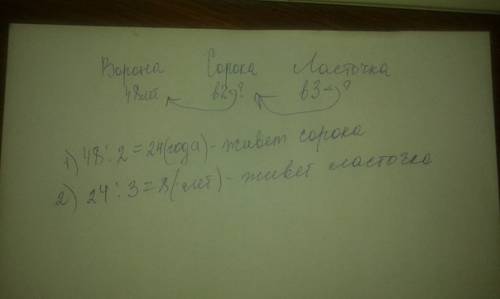 Ворона Сорока Ласточка
48лет в2? в3-?
1) 48:2=24(года)-живет сорока
2) 24:3=8(лет)-живет ласточка